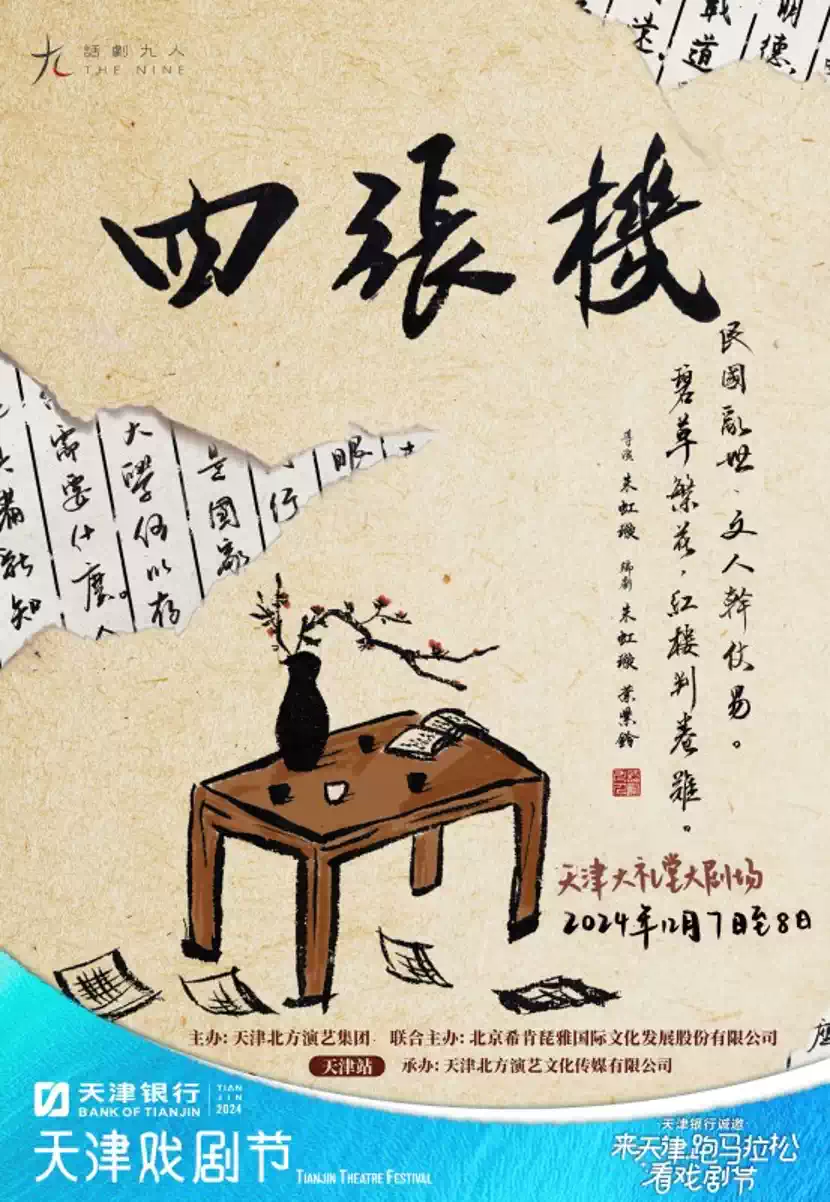 話劇九人
THE NINE
明德
道
四張機
民國亂世、文人幹仗易。
碧草繁花,紅樓判卷難。
導演 朱虹璇 編劇 朱虹璇 葉紫鈴
眼
行
是國家
大學何以存
需要什麼。人
新知
天津大礼堂大剧场
2024年12月7日至8日
主办:天津北方演艺集团 联合主办:北京希肯琵雅国际文化发展股份有限公司
天津站 承办:天津北方演艺文化传媒有限公司
天津银行 TIAN JIN 2024
BANK OF TIANJIN
天津戏剧节 TIANJIN THEATRE FESTIVAL
天津银行诚邀
来天津跑马拉松
看戏剧节